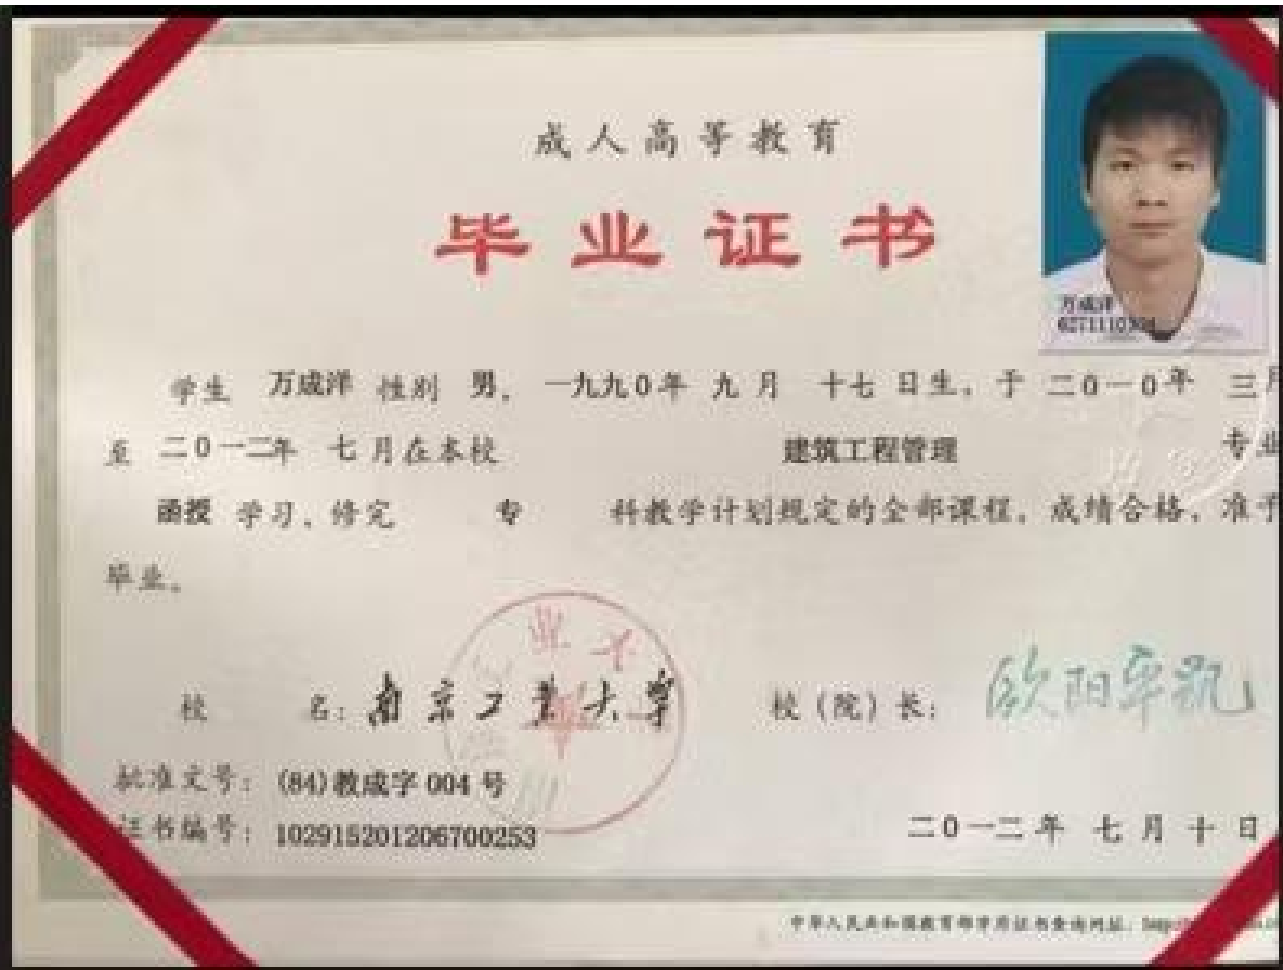 成人高等教育
毕业证书
万成洋
学生 万成洋 性别 男，一九九0年 九月 十七 日生，于 二0一0年 三月
至 二0一二年 七月在本校 建筑工程管理 专业
函授 学习，修完 专 科教学计划规定的全部课程，成绩合格，准予
毕业。
校 名：南京工业大学 校（院）长：欧阳平凯
批准文号：(84)教成字 004 号
证书编号：102915201206700253 二0一二年 七月十日
中华人民共和国教育部学历证书查询网址：